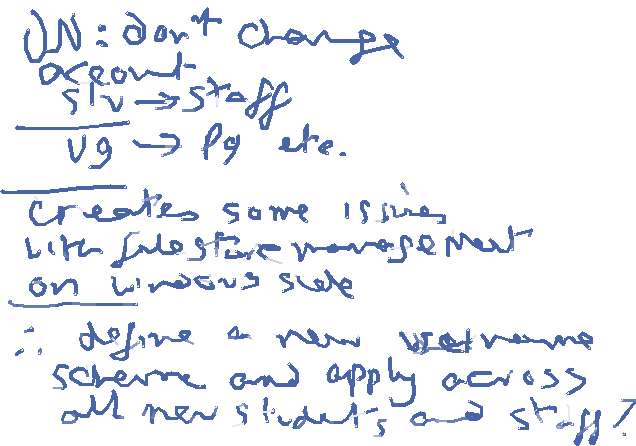 JN: don't change
account
stu → staff
ug → pg etc.
creates some issues
with filestore management
on windows side
∴ define a new username
scheme and apply across
all new students and staff?